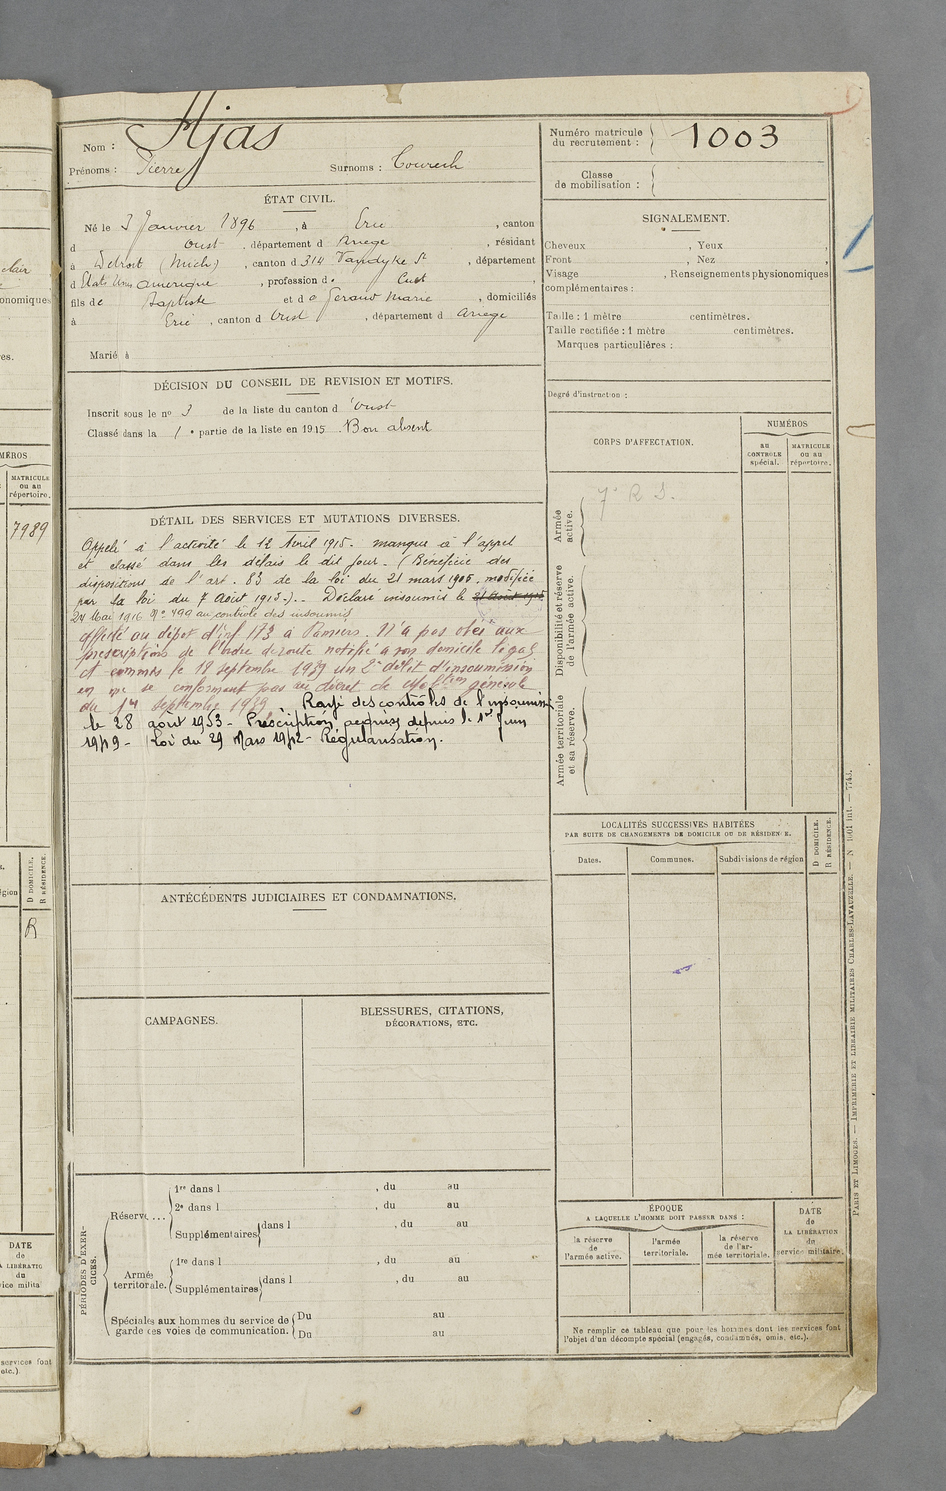 Nom : Ajas
Prénoms : Pierre Surnoms : Courech
Numéro matricule du recrutement : 1003
Classe de mobilisation :
ÉTAT CIVIL.
Né le 3 Janvier 1896, à Ercé, canton
d Oust, département d Ariege, résidant
à Detroit (Mich), canton d 314 Vandyke St, département
d États Unis amerique, profession de
fils de Baptiste et de Geraud Marie, domiciliés
à Ercé, canton d Oust, département d Ariege
Marié à
SIGNALEMENT.
Cheveux , Yeux ,
Front , Nez ,
Visage , Renseignements physionomiques
complémentaires :
Taille : 1 mètre centimètres.
Taille rectifiée : 1 mètre centimètres.
Marques particulières :
Degré d'instruction :
DÉCISION DU CONSEIL DE REVISION ET MOTIFS.
Inscrit sous le no 3 de la liste du canton d'Oust
Classé dans la 1e partie de la liste en 1915. Bon absent
DÉTAIL DES SERVICES ET MUTATIONS DIVERSES.
Appelé à l'activité le 12 Avril 1915. manque à l'appel
et classé dans les délais le dit jour. (Bénéficie des
dispositions de l'art. 83 de la loi du 21 mars 1905, modifiée
par la loi du 7 Août 1913.). Déclaré insoumis le 21 Août 1915
24 Mai 1916 No 499 au contrôle des insoumis
affecté au dépôt d'inf 173 à Pamiers. N'a pas obéi aux
prescriptions de l'ordre de route notifié à son domicile légal
et commis le 18 septembre 1939 un 2e délit d'insoumission
en ne se conformant pas au décret de Moblion générale
du 1er septembre 1939. Rayé des contrôles de l'insoumission
le 28 août 1953 - Prescription acquise depuis le 1er Juin
1949 - Loi du 29 Mars 1942 - Régularisation.
CORPS D'AFFECTATION.
NUMÉROS
au CONTRÔLE spécial.
MATRICULE ou au répertoire.
Armée active.
7e R D.
Disponibilité et réserve de l'armée active.
Armée territoriale et sa réserve.
LOCALITÉS SUCCESSIVES HABITÉES
PAR SUITE DE CHANGEMENTS DE DOMICILE OU DE RÉSIDENCE.
Dates. Communes. Subdivisions de région
D DOMICILE.
R RÉSIDENCE.
ANTÉCÉDENTS JUDICIAIRES ET CONDAMNATIONS.
CAMPAGNES.
BLESSURES, CITATIONS,
DÉCORATIONS, ETC.
PÉRIODES D'EXERCICES.
Réserve ...
1re dans l , du au
2e dans l , du au
Supplémentaires dans l , du au
Armée territoriale.
1re dans l , du au
Supplémentaires dans l , du au
Spéciales aux hommes du service de
garde des voies de communication.
Du au
Du au
ÉPOQUE
A LAQUELLE L'HOMME DOIT PASSER DANS :
la réserve de l'armée active.
l'armée territoriale.
la réserve de l'armée territoriale.
DATE de LA LIBÉRATION du service militaire.
Ne remplir ce tableau que pour les hommes dont les services font
l'objet d'un décompte spécial (engagés, condamnés, omis, etc.).
PARIS ET LIMOGES. — IMPRIMERIE ET LIBRAIRIE MILITAIRES CHARLES-LAVAUZELLE.
7989
R